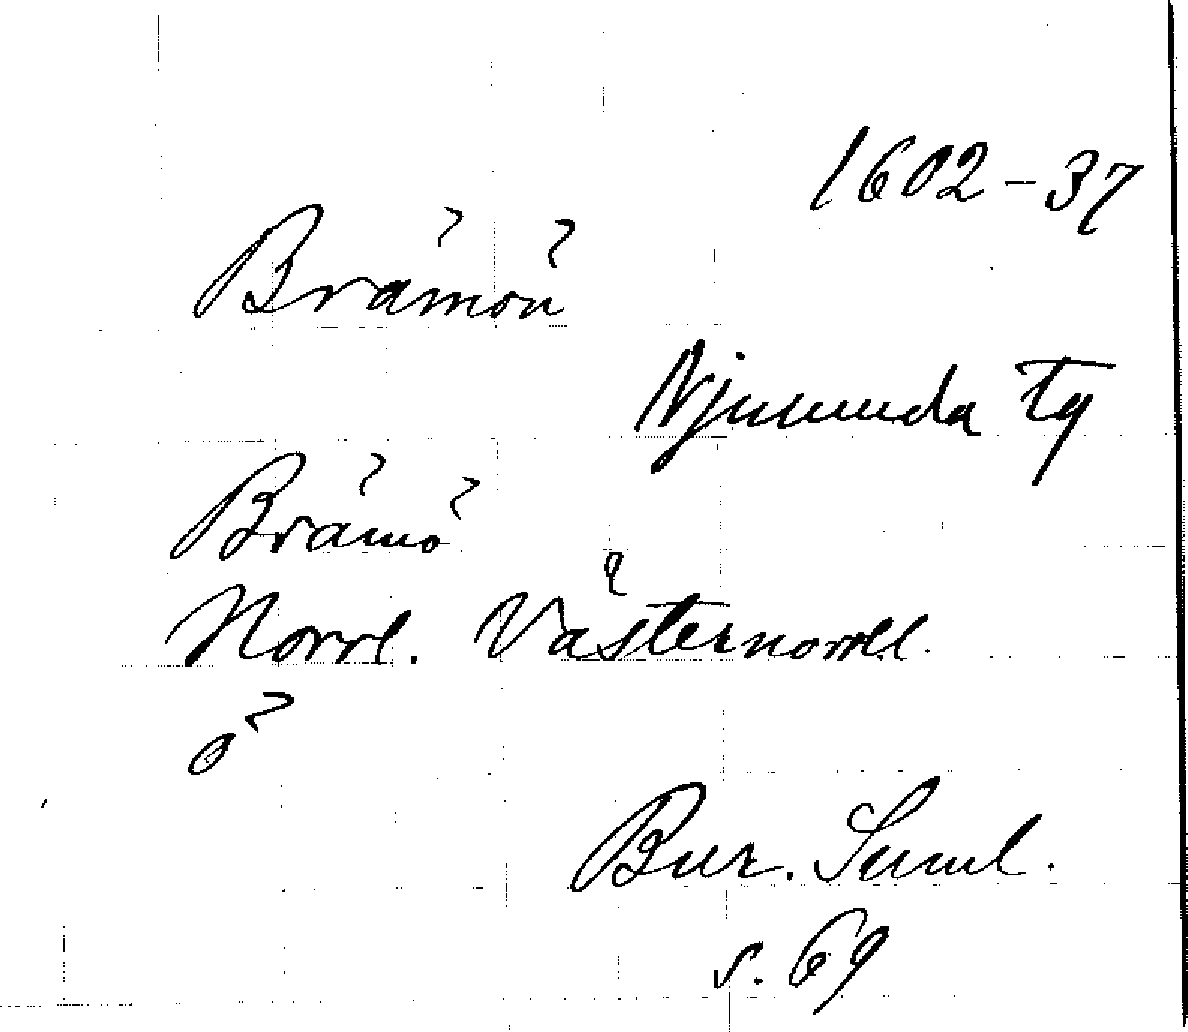 1602-37
Brämön
Njurunda Tg
Brämö
Norrl. Västernorrl.
ö
Bur. Suml.
s. 69